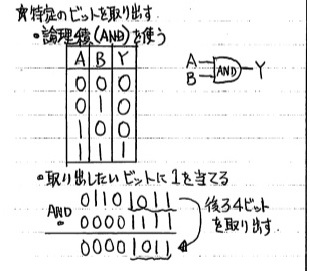 ☆特定のビットを取り出す
•論理積(AND)を使う
A B Y
0 0 0
0 1 0
1 0 0
1 1 1
A
B
AND
Y
•取り出したいビットに1を当てる
01101011
AND 00001111
00001011
後ろ4ビット
を取り出す